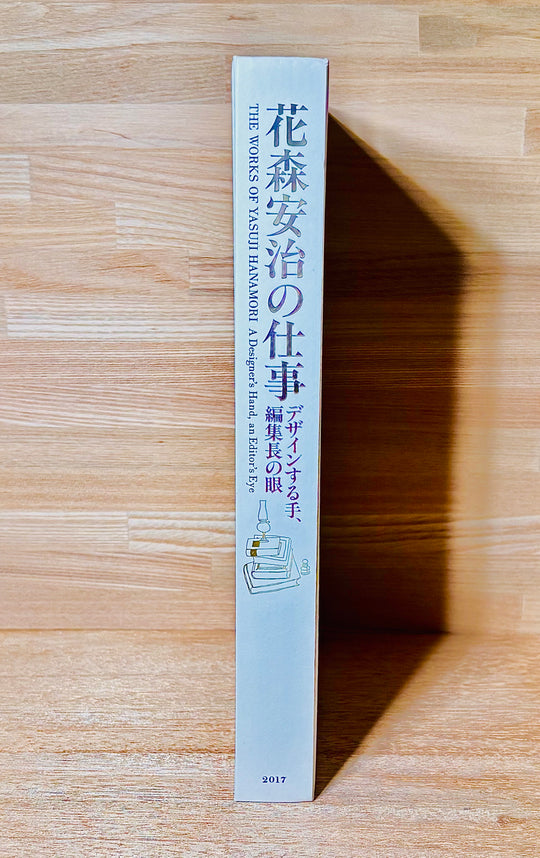 花森安治の仕事
デザインする手、
編集長の眼
THE WORKS OF YASUJI HANAMORI A Designer's Hand, an Editor's Eye
2017